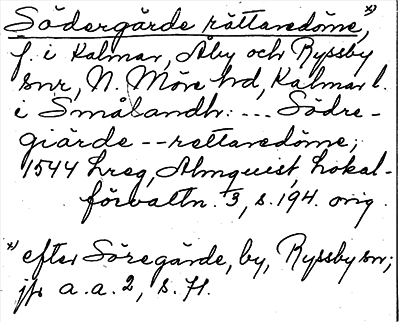 Södergärde rättaredöme, x)
f. i Kalmar, Åby och Ryssby
snr, N. Möre hd, Kalmar l.
i Smålandh: ... Södre-
giärde -- rettaredöme,
1544 hreg, Almquist, Lokal-
förvaltn. 3, s. 194. orig.
x) efter Söregärde, by, Ryssby sn;
jfr a. a. 2, s. 71.